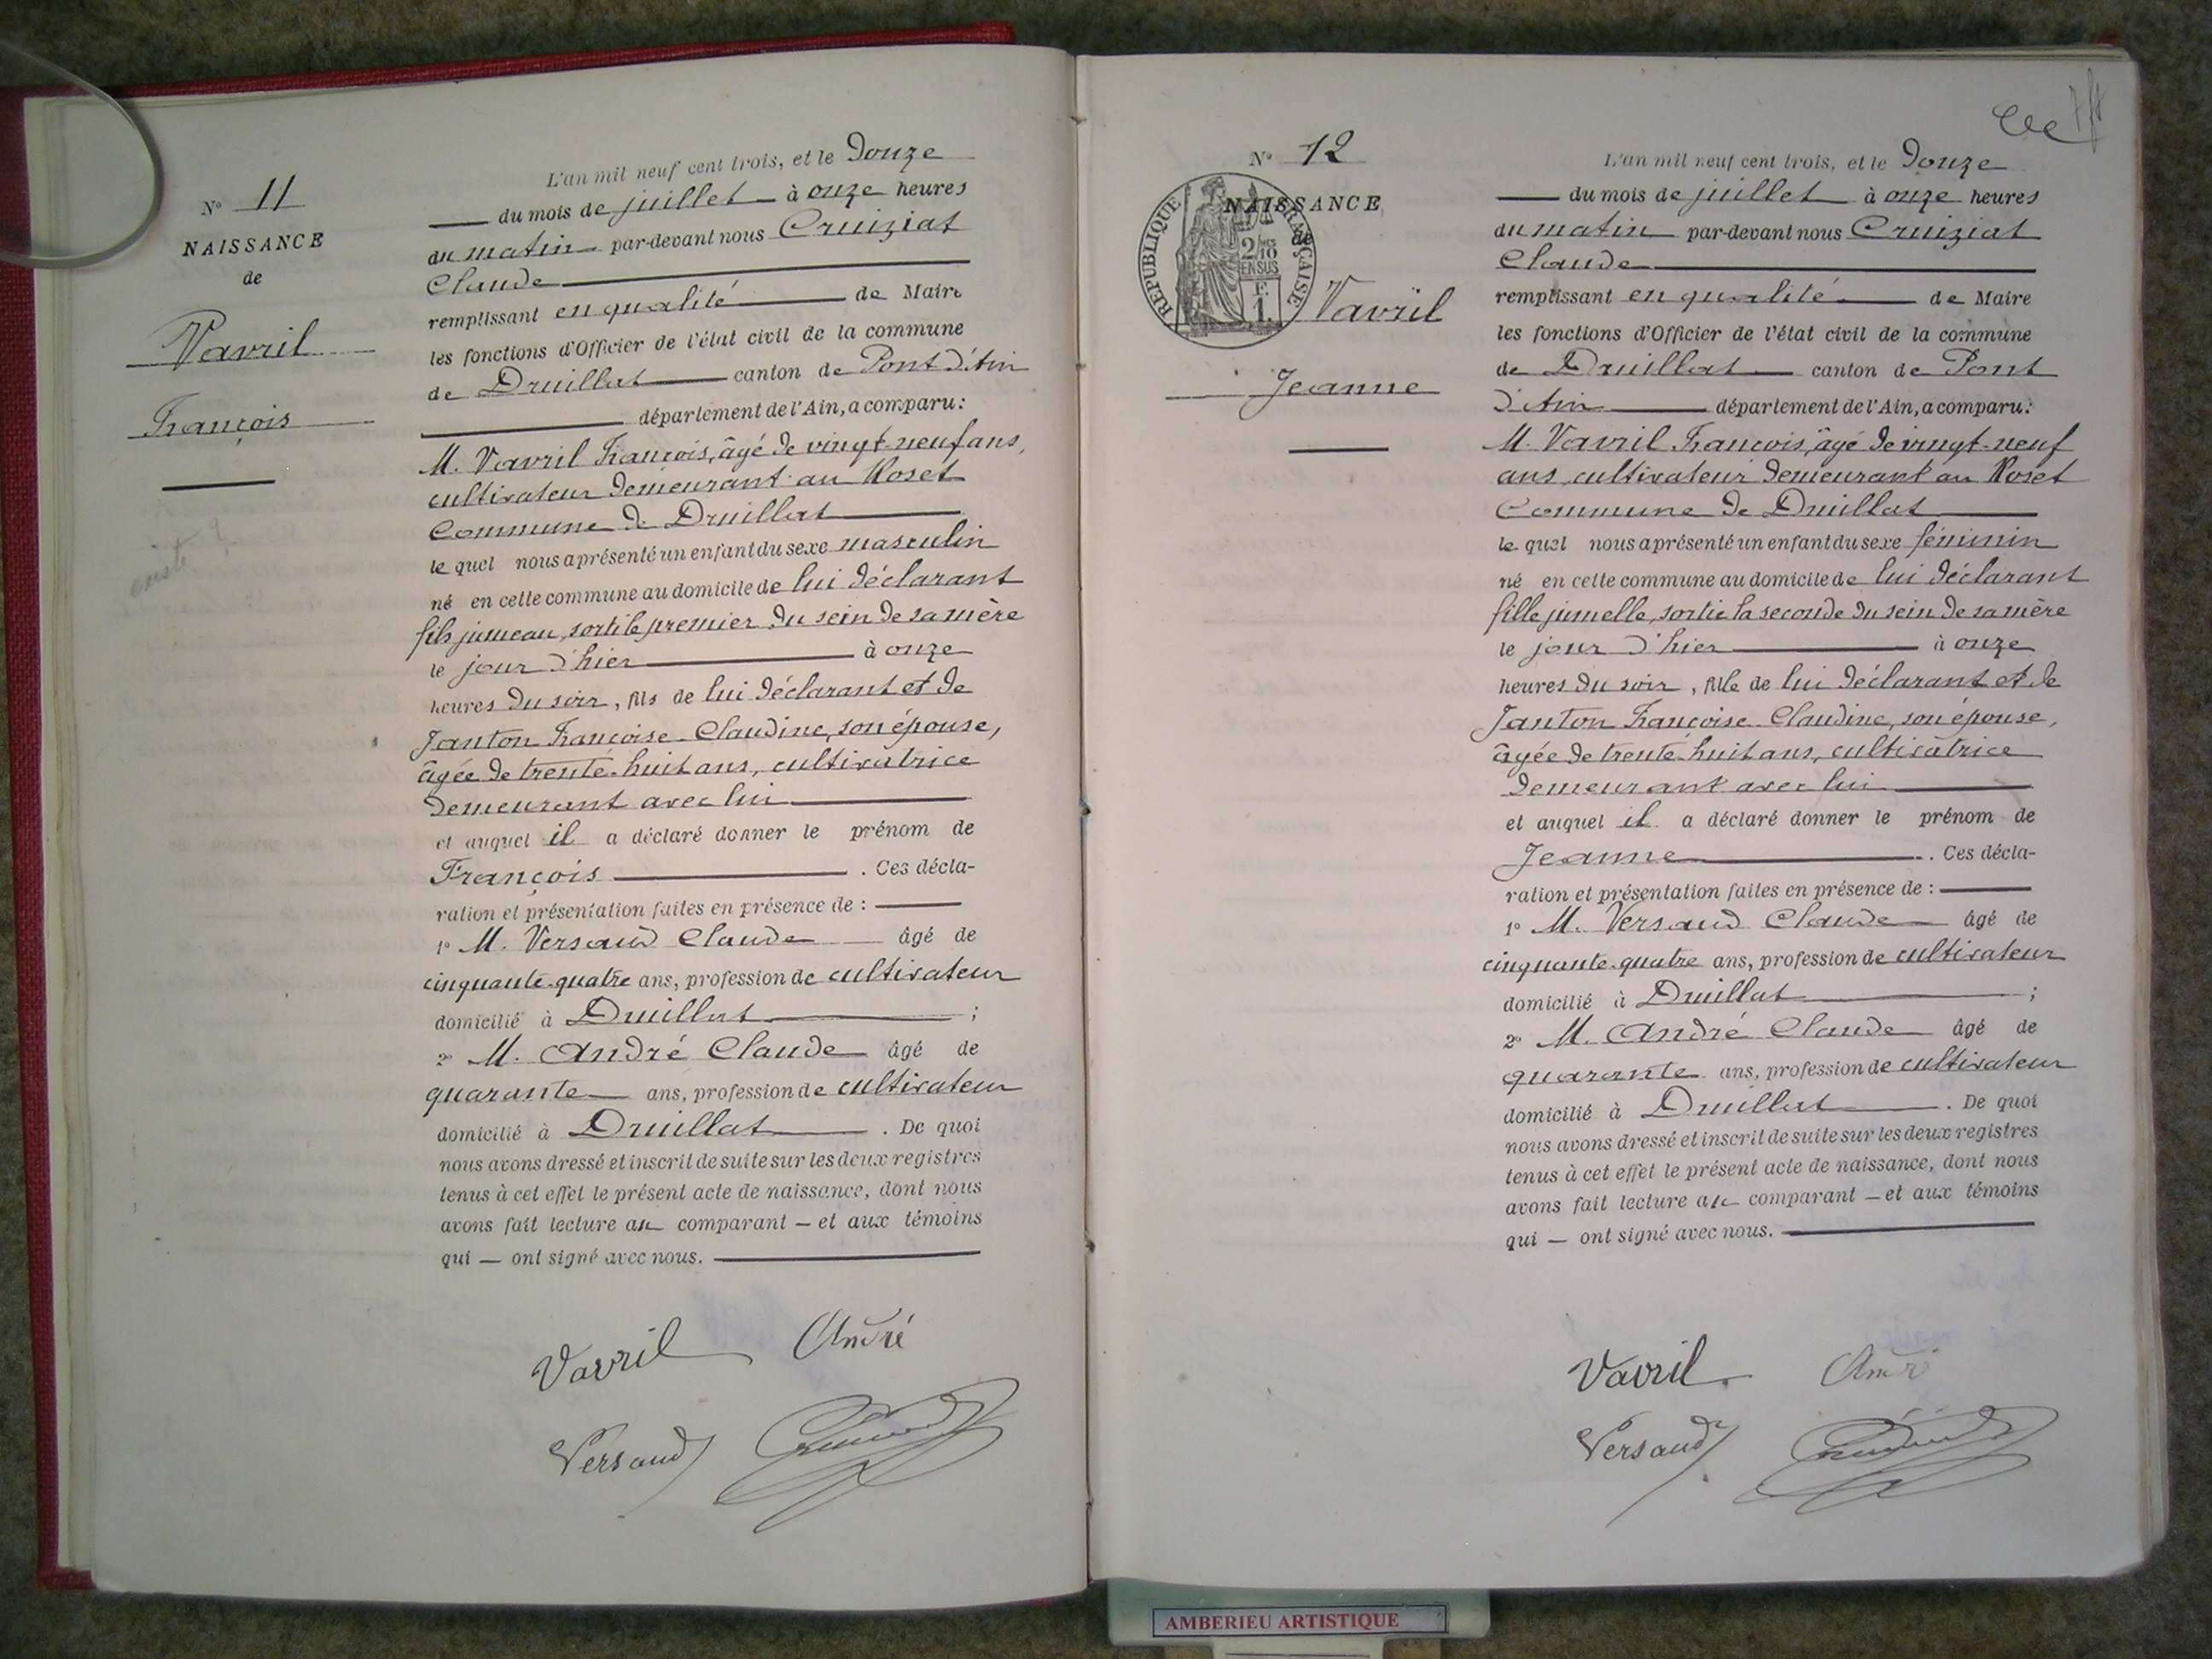 N° 11
NAISSANCE
de
Vavril
François
L'an mil neuf cent trois, et le Douze
du mois de juillet à onze heures
du matin par-devant nous Cruiziat
Claude
remplissant en qualité de Maire
les fonctions d'Officier de l'état civil de la commune
de Druillat canton de Pont d'Ain
département de l'Ain, a comparu :
M. Vavril François, âgé de vingt-neuf ans,
cultivateur demeurant au Roset
Commune de Druillat
le quel nous a présenté un enfant du sexe masculin
né en cette commune au domicile de lui déclarant
fils jumeau, sorti le premier du sein de sa mère
le jour d'hier à onze
heures du soir, fils de lui déclarant et de
Janton Françoise Claudine, son épouse,
âgée de trente-huit ans, cultivatrice
demeurant avec lui
et auquel il a déclaré donner le prénom de
François . Ces décla-
ration et présentation faites en présence de :
1° M. Versaud Claude âgé de
cinquante-quatre ans, profession de cultivateur
domicilié à Druillat ;
2° M. André Claude âgé de
quarante ans, profession de cultivateur
domicilié à Druillat . De quoi
nous avons dressé et inscrit de suite sur les deux registres
tenus à cet effet le présent acte de naissance, dont nous
avons fait lecture au comparant — et aux témoins
qui — ont signé avec nous.
Vavril André
Versaud
N° 12
NAISSANCE
de
RÉPUBLIQUE FRANÇAISE
2/10
EN SUS
F.
1.
Vavril
Jeanne
L'an mil neuf cent trois, et le Douze
du mois de juillet à onze heures
du matin par-devant nous Cruiziat
Claude
remplissant en qualité de Maire
les fonctions d'Officier de l'état civil de la commune
de Druillat canton de Pont
d'Ain département de l'Ain, a comparu :
M. Vavril François, âgé de vingt-neuf
ans, cultivateur demeurant au Roset
Commune de Druillat
le quel nous a présenté un enfant du sexe féminin
né en cette commune au domicile de lui déclarant
fille jumelle, sortie la seconde du sein de sa mère
le jour d'hier à onze
heures du soir, fille de lui déclarant et de
Janton Françoise Claudine, son épouse,
âgée de trente-huit ans, cultivatrice
demeurant avec lui
et auquel il a déclaré donner le prénom de
Jeanne . Ces décla-
ration et présentation faites en présence de :
1° M. Versaud Claude âgé de
cinquante-quatre ans, profession de cultivateur
domicilié à Druillat ;
2° M. André Claude âgé de
quarante ans, profession de cultivateur
domicilié à Druillat . De quoi
nous avons dressé et inscrit de suite sur les deux registres
tenus à cet effet le présent acte de naissance, dont nous
avons fait lecture au comparant — et aux témoins
qui — ont signé avec nous.
Vavril
Versaud
AMBERIEU ARTISTIQUE